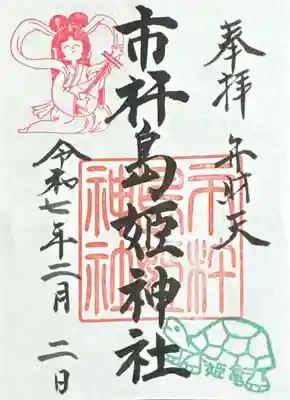 奉拝
弁財天
市杵島姫神社
市杵島姫神社
令和七年二月二日
姫亀